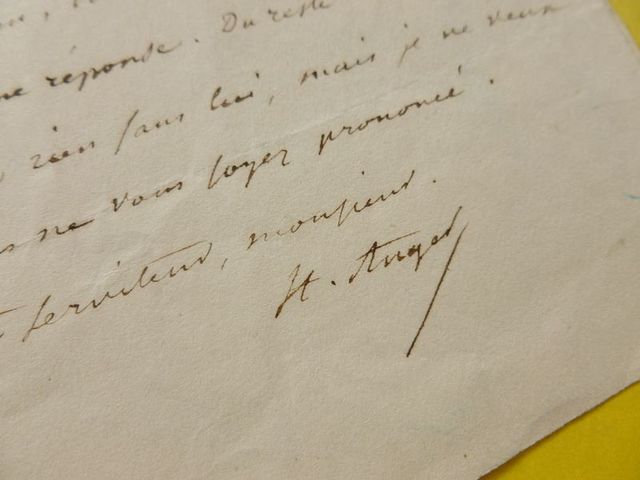 me réponde. Du reste
rien sans lui, mais je ne veux
ne vous soyez prononcé.
serviteur, monsieur.
St. Anges